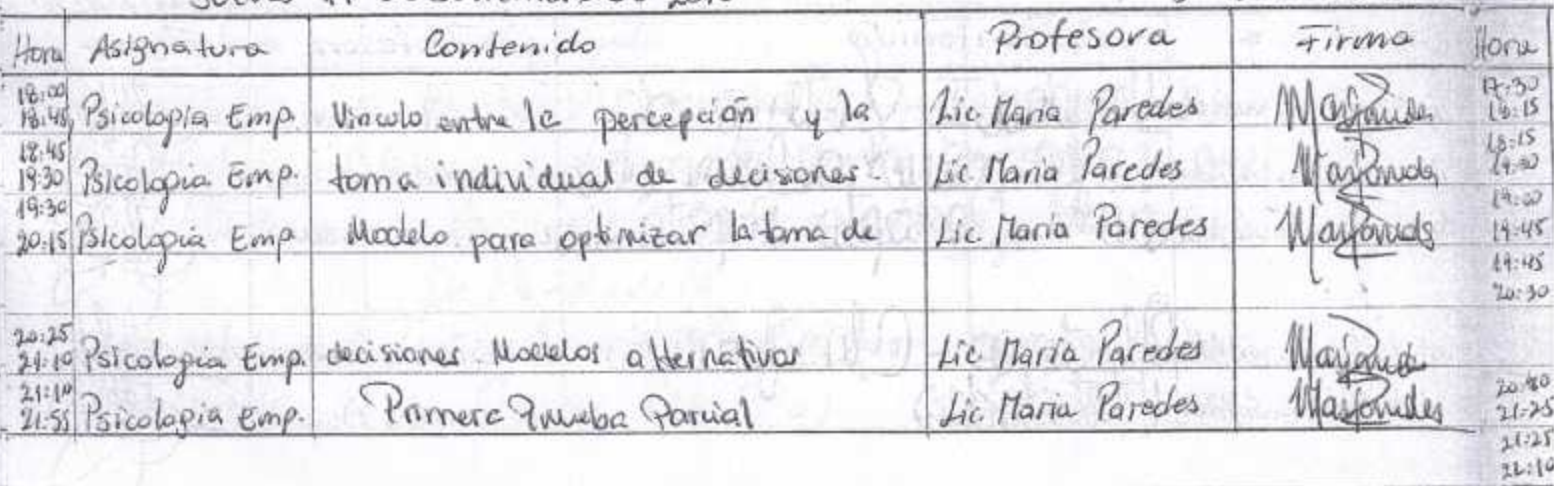 Hora Asignatura Contenido Profesora Firma Hora
18:00
18:45 Psicología Emp. Vinculo entre la percepción y la Lic Maria Paredes
17:30
18:15
18:45
19:30 Psicología Emp. toma individual de decisiones. Lic Maria Paredes
18:15
19:00
19:30
20:15 Psicología Emp. Modelo para optimizar la toma de Lic Maria Paredes
19:00
19:45
19:45
20:30
20:25
21:10 Psicología Emp. decisiones. Modelos alternativos Lic Maria Paredes
21:10
21:55 Psicología Emp. Primera Prueba Parcial Lic Maria Paredes
20:40
21:25
21:25
22:10